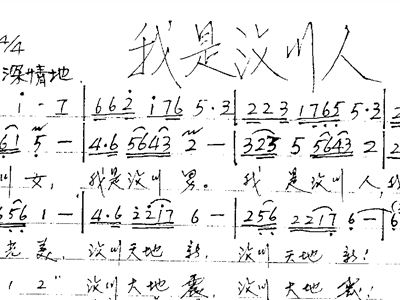 我是汶川人
4/4
深情地
i · 7 | 6 6 2 i 7 6 5 · 3 | 2 2 3 1 7 6 5 5 · 3 2
6 1 5 — | 4 · 6 5 6 4 3 2 — | 3 2 5 5 5 6 4 3 2
川 女, 我是汶川 男。 我 是汶川人, 我
6 5 6 1 — | 4 · 6 2 2 1 7 6 — | 2 5 6 2 2 1 7 6 — 6
老 美, 汶川天地 新, 汶川 天地 新!
1 2 " 汶川大地 震, 汶川 大地 震!